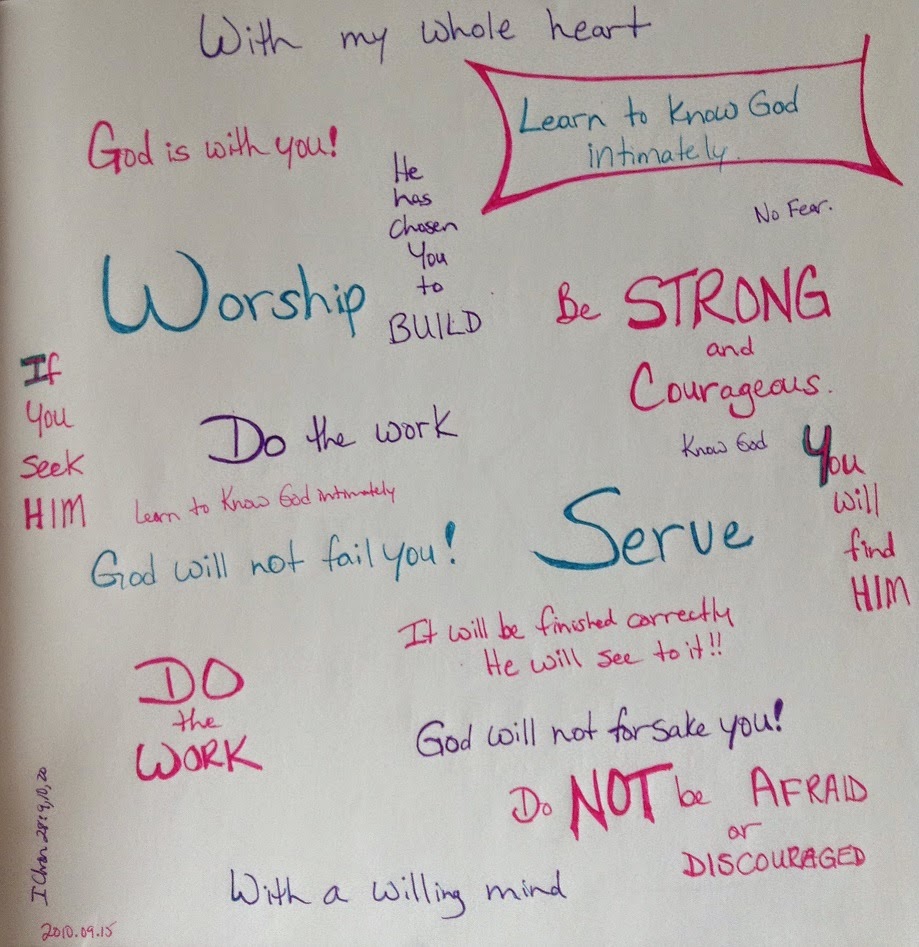 With my whole heart
God is with you!
Learn to Know God
intimately.
He
has
Chosen
You
to
BUILD
No Fear.
Worship
Be STRONG
and
Courageous.
If
You
Seek
HIM
Do the work
Know God
You
will
find
HIM
Learn to Know God intimately
God will not fail you!
Serve
It will be finished correctly
He will see to it!!
DO
the
WORK
God will not forsake you!
Do NOT be AFRAID
or
DISCOURAGED
With a willing mind
I Chron 28:9,10,20
2010.09.15